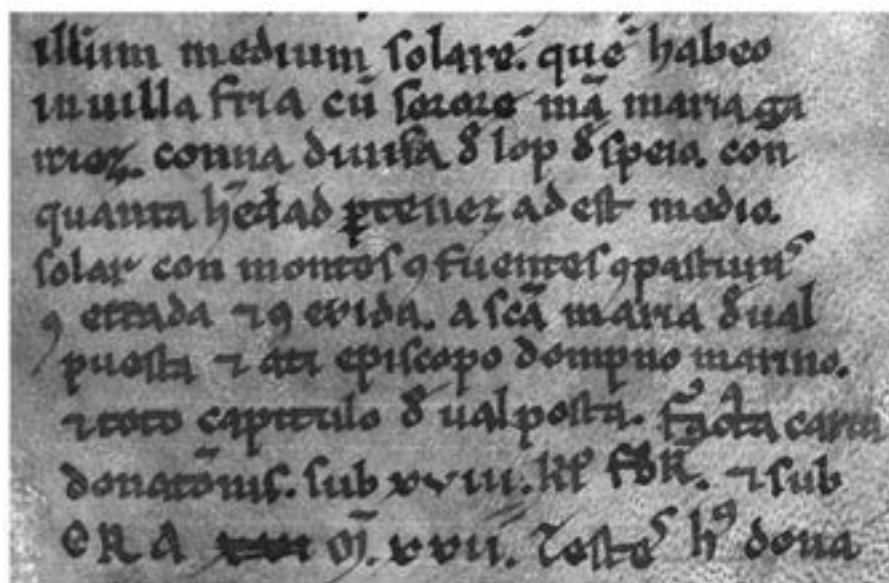 illum medium solarē. quē habeo
in uilla fria cū sorore mā maria ga
conna diuisa đ lop đ speio. con
quanta hēdad ꝑtenez ad est medio.
solar con montes ꝯ fuentes ꝯ pasturas
ꝯ exida. a scā maria đ ual
puesta ⁊ ati episcopo dompno marino.
⁊ toto capitulo đ ual posta. facta carta
donatōnis. sub xviii. kł fbr̄. ⁊ sub
ERA xvii. Testes hꝰ dona